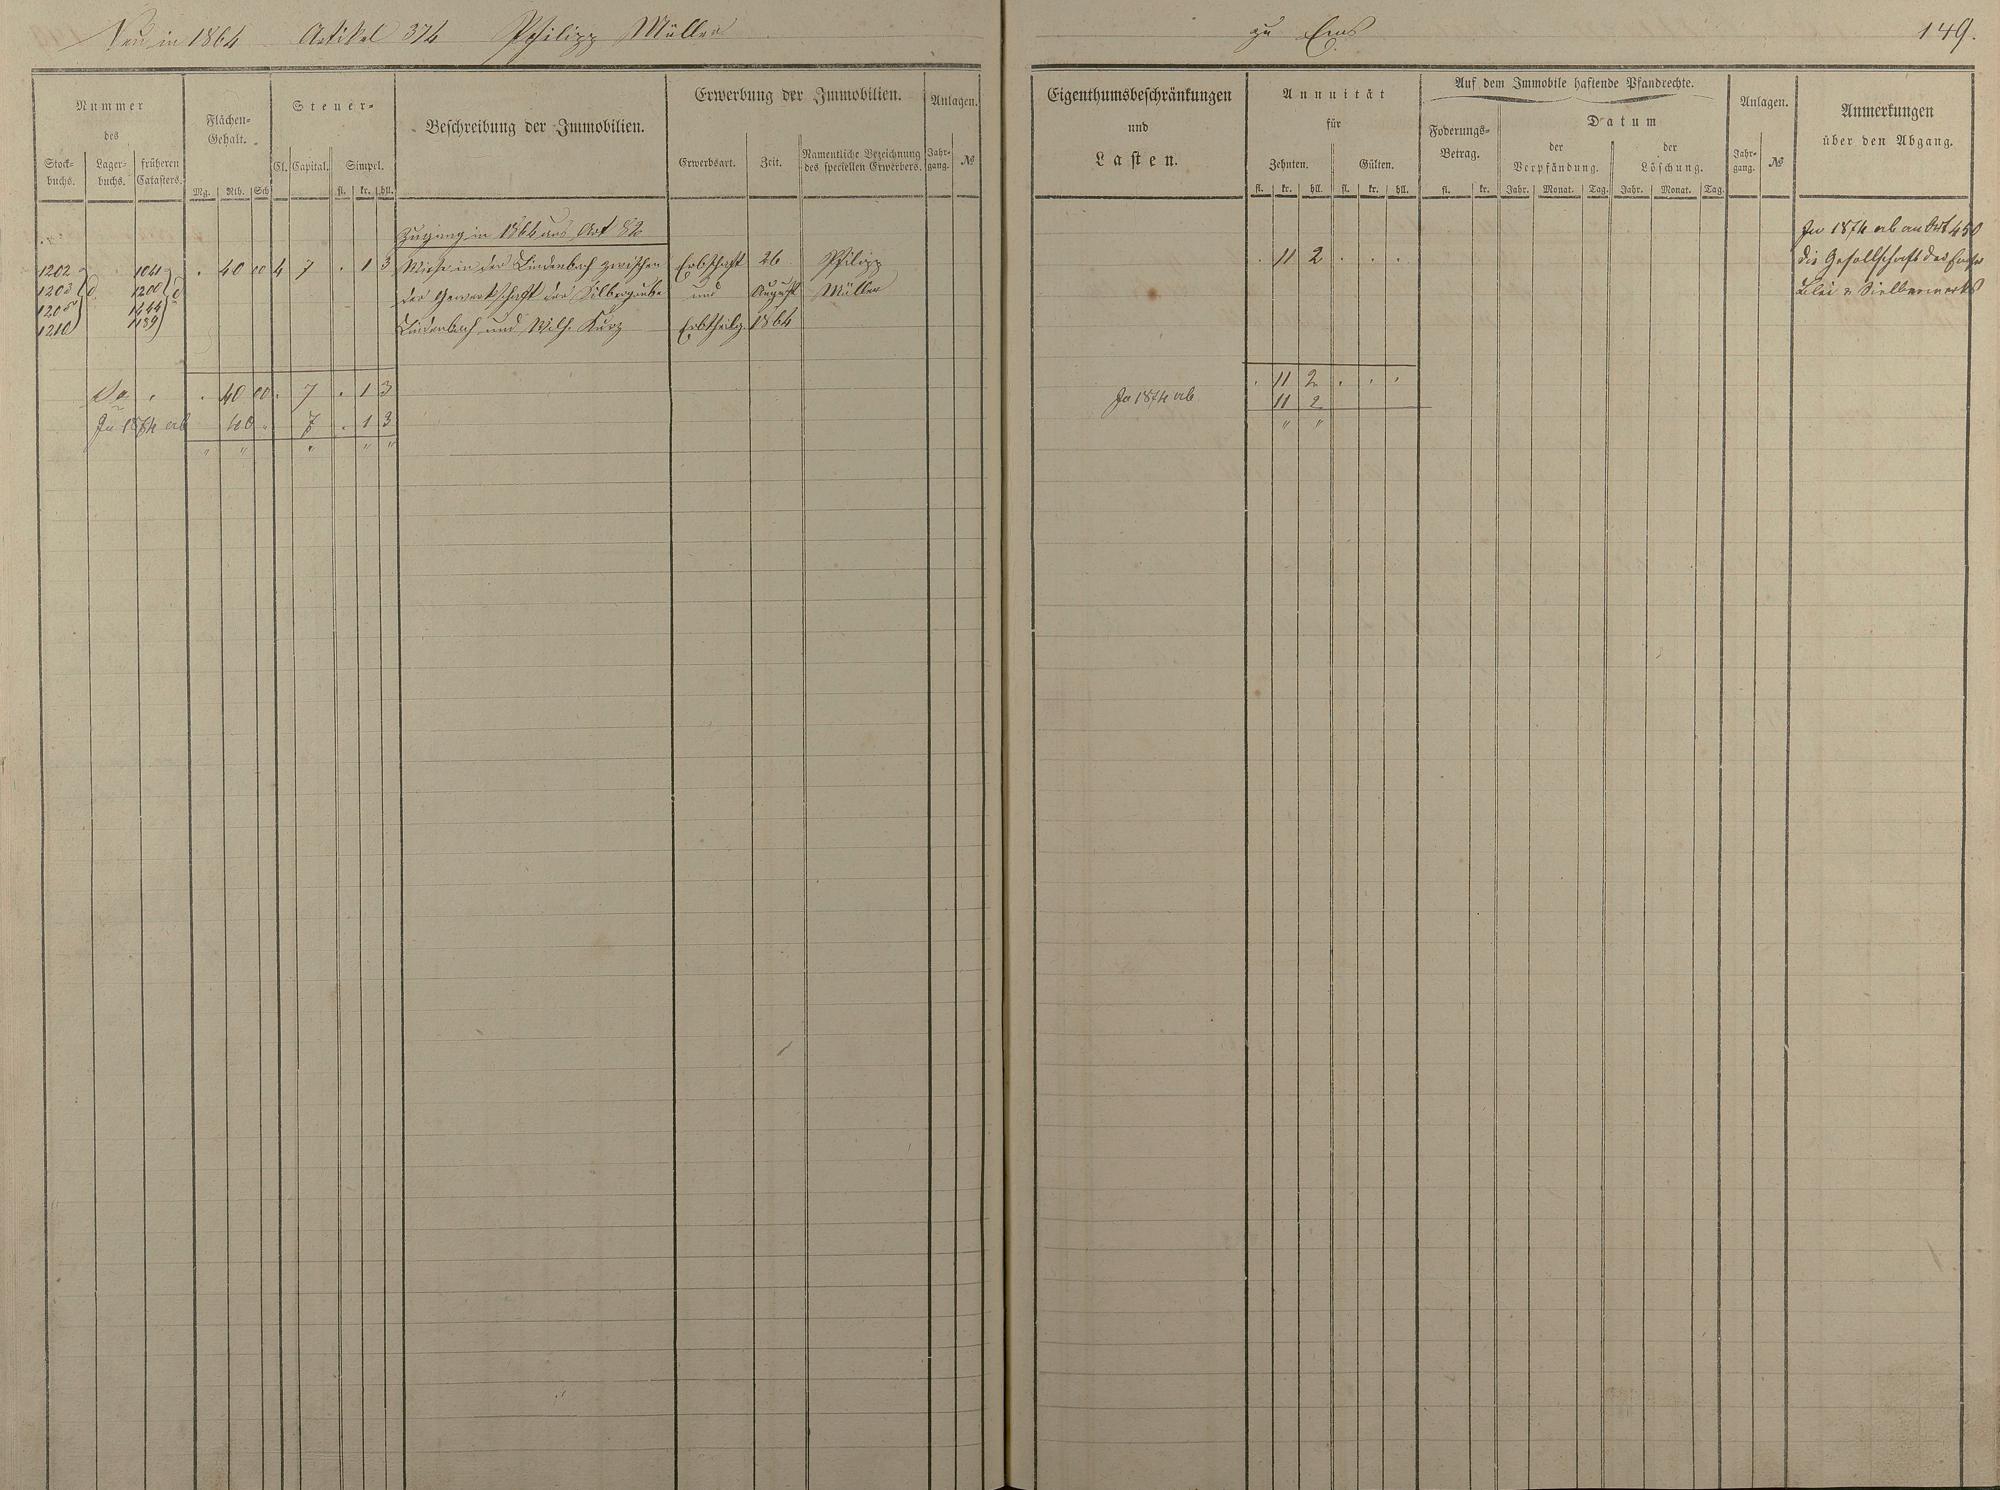 Neu in 1864 Artikel 374 Philipp Müller zu Ems 149.
Nummer
des
Stock-
buchs.
Lager-
buchs.
früheren
Catasters.
Flächen-
Gehalt.
Mg. Rth. Sch
Steuer-
Cl. Capital. Simpel.
fl. kr. hll.
Beschreibung der Immobilien.
Erwerbung der Immobilien.
Erwerbsart. Zeit. Namentliche Bezeichnung
des speciellen Erwerbers.
Anlagen.
Jahr-
gang. №
Eigenthumsbeschränkungen
und
Lasten.
Annuität
für
Zehnten. Gülten.
fl. kr. hll. fl. kr. hll.
Auf dem Immobile haftende Pfandrechte.
Foderungs-
Betrag.
fl. kr.
Datum
der
Verpfändung.
der
Löschung.
Jahr. Monat. Tag. Jahr. Monat. Tag.
Anlagen.
Jahr-
gang. №
Anmerkungen
über den Abgang.
Zugang in 1864 aus Art 82
1202 1041 40 00 4 7 1 3 Wiese in der Lindenbach zwischen Erbschaft 26 Philipp 11 2
1203 1200 der Gewerkschaft der Silbergrube und August Müller
1205 1244
1210 1189 Lindenbach und Wilh. Kurz Erbtheilg. 1864
In 1874 ab an Art 450
die Gesellschaft des Emser
Blei & Silberwerks
Sa 40 00 7 1 3 11 2
In 1874 ab 40 7 1 3 In 1874 ab 11 2
" " " " " " "